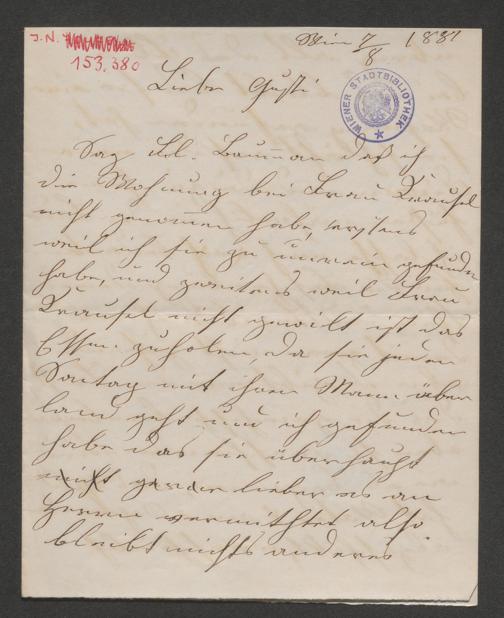 J. N.
153.380
Wien 7/8 1881
WIENER STADTBIBLIOTHEK
Liebe Gusti
Sag Frl. Bauman daß ich
die Wohnung bei Frau Krausel
nicht genommen habe, erstens
weil ich sie zu unrein gefunden
habe, und zweitens weil Frau
Krausel nicht gewilt ist das
Essen zuholen, da sie jeden
Sontag mit ihren Mann über
land geht und ich gefunden
habe das sie überhaupt
nicht lieber es an
Herrn vermithtet also
bleibt nichts anderes